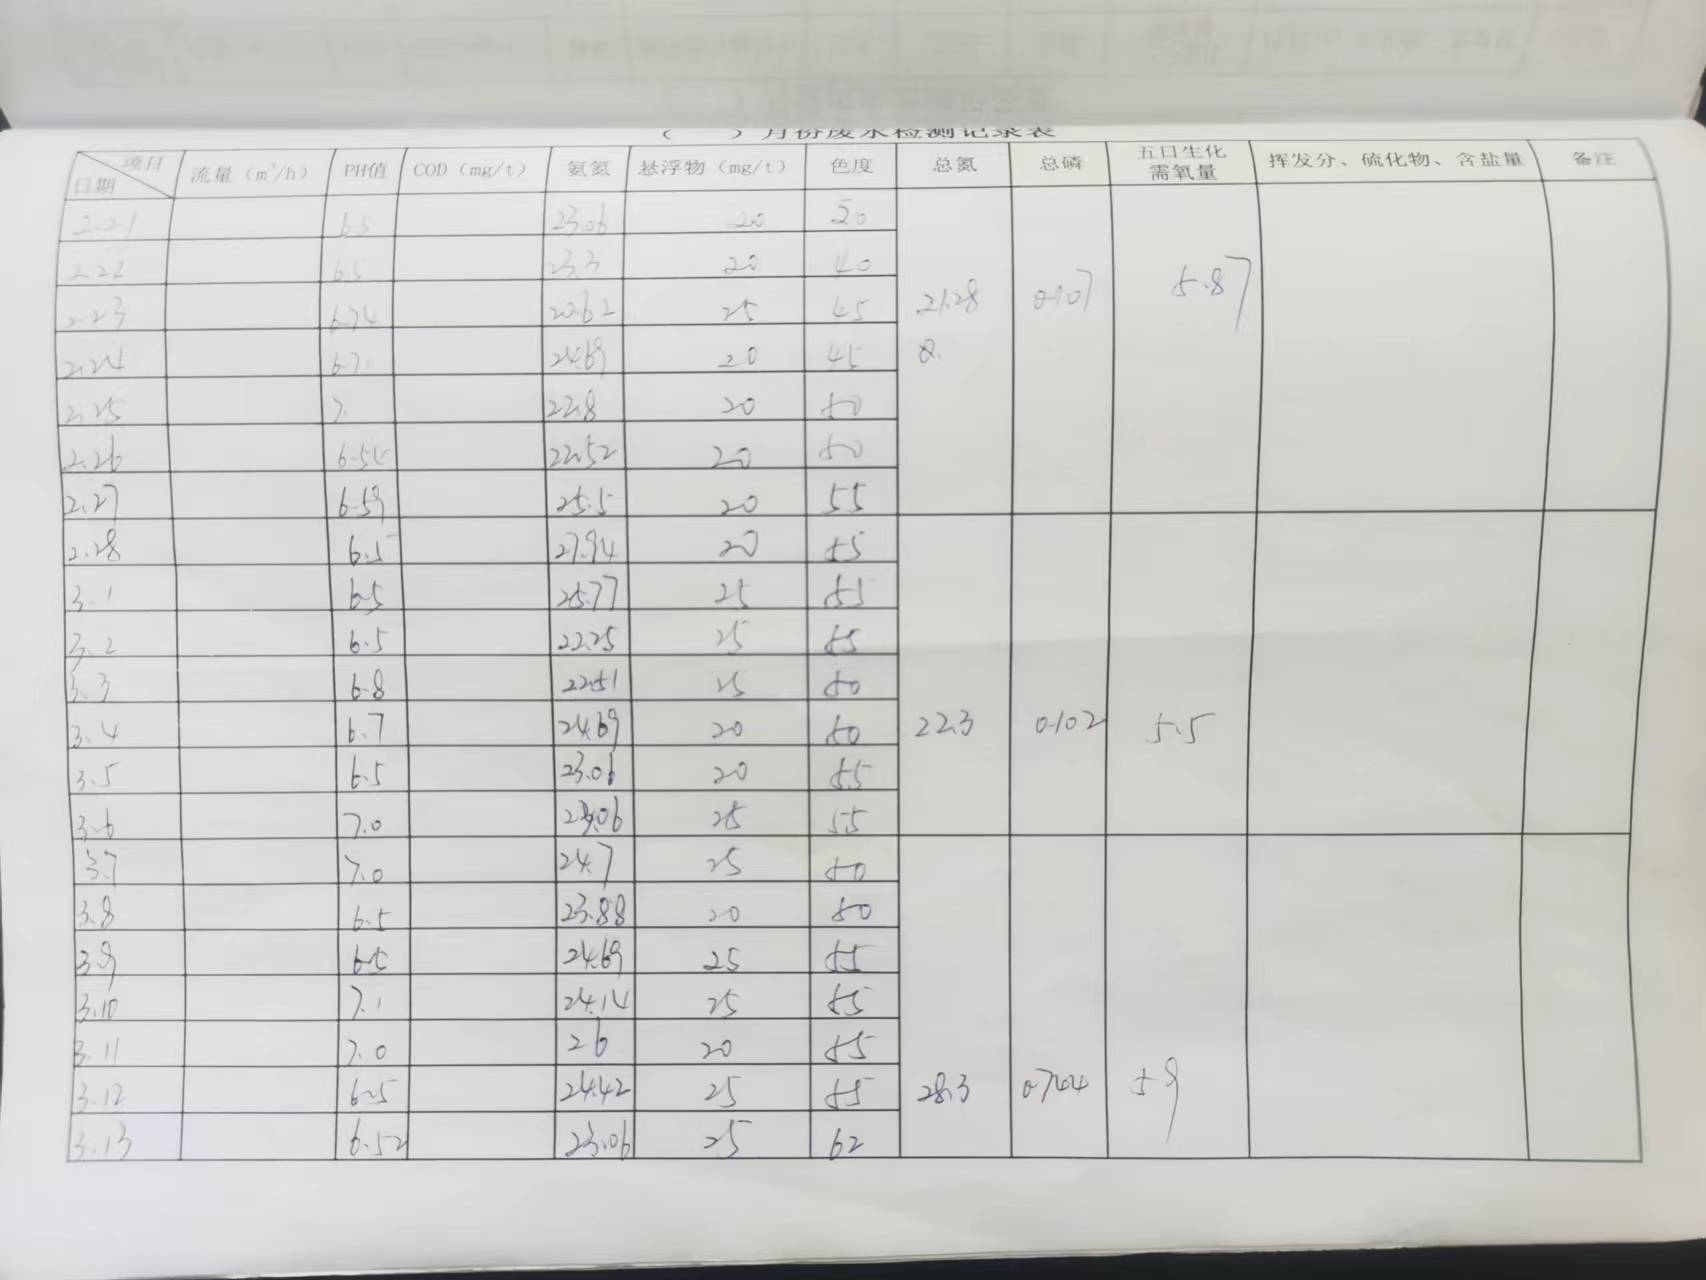 ( )月份废水检测记录表
项目 日期 流量（m³/h） PH值 COD（mg/t） 氨氮 悬浮物（mg/t） 色度 总氮 总磷 五日生化需氧量 挥发分、硫化物、含盐量 备注
2.21 6.5 23.06 20 50
2.22 6.5 23.3 20 40
2.23 6.74 20.62 25 45 21.28 0.107 5.87
2.24 6.7 24.69 20 45
2.25 7. 22.8 20 50
2.26 6.54 22.52 20 50
2.27 6.59 25.5 20 55
2.28 6.5 27.94 20 55
3.1 6.5 25.77 25 55
3.2 6.5 22.25 25 55
3.3 6.8 22.51 25 50
3.4 6.7 24.69 20 50 22.3 0.102 5.5
3.5 6.5 23.06 20 55
3.6 7.0 23.06 25 55
3.7 7.0 24.7 25 50
3.8 6.5 23.88 20 50
3.9 6.5 24.69 25 55
3.10 7.1 24.14 25 55
3.11 7.0 26 20 55
3.12 6.5 24.42 25 55 28.3 5.9
3.13 6.52 23.06 25 62